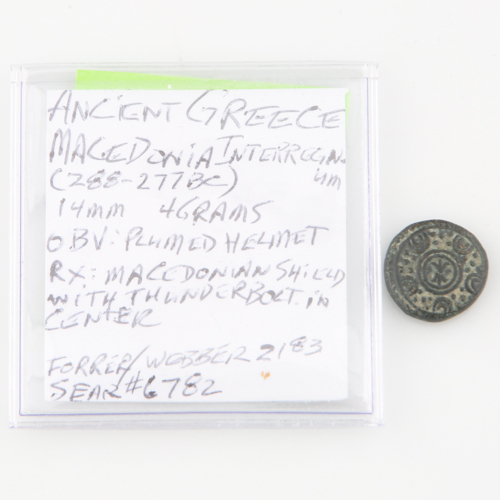 ANCIENT GREECE
MACEDONIA INTERREGNUM
(288-277BC)
14mm 4GRAMS
OBV: PLUMED HELMET
RX: MACEDONIAN SHIELD
WITH THUNDERBOLT IN
CENTER
FORRER/WEBBER 2183
SEAR #6782